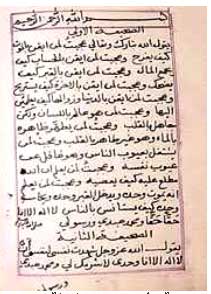 بسم الله الرحمن الرحيم
الصحيفة الاولي
يقول الله تبارك وتعالي عجبت لمن ايقن بالموت
كيف يفرح وعجبت لمن ايقن بالحساب كيف
يجمع المال وعجبت لمن ايقن بالقبر كيف
يضحك وعجبت لمن ايقن بالاخرة كيف يستريح
وعجبت لمن ايقن بالدنيا وزوالها كيف يطمئن
اليها وعجبت لمن هو عالم باللسان ولكن
جاهل بالقلب وعجبت لمن يطهر ظاهره
بالماء وهو غير طاهر بالقلب وعجبت لمن
يشتغل بعيوب الناس وهو غافل عن
عيوب نفسه وعجبت لمن يعلم ان الله
مطلع عليه كيف يعصيه وعجبت لمن يعلم
انه يموت وحده ويدخل القبر وحده ويحاسب
وحده كيف يستانس بالناس لا اله الا انا
حقا حقا ومحمد عبدي ورسولي
الصحيفة الثانية
يقول الله عز وجل شهدت نفسي لنفسي ان
لا اله الا انا وحدي لا شريك لي ومحمد عبدي
ورسولي